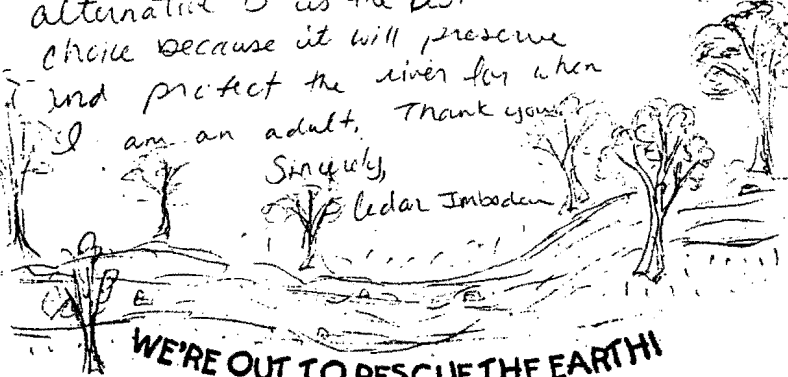 alternative B is the best
choice because it will preserve
and protect the river for when
I am an adult. Thank you.
Sincerely,
Cedar Imboden
WE'RE OUT TO RESCUE THE EARTH!